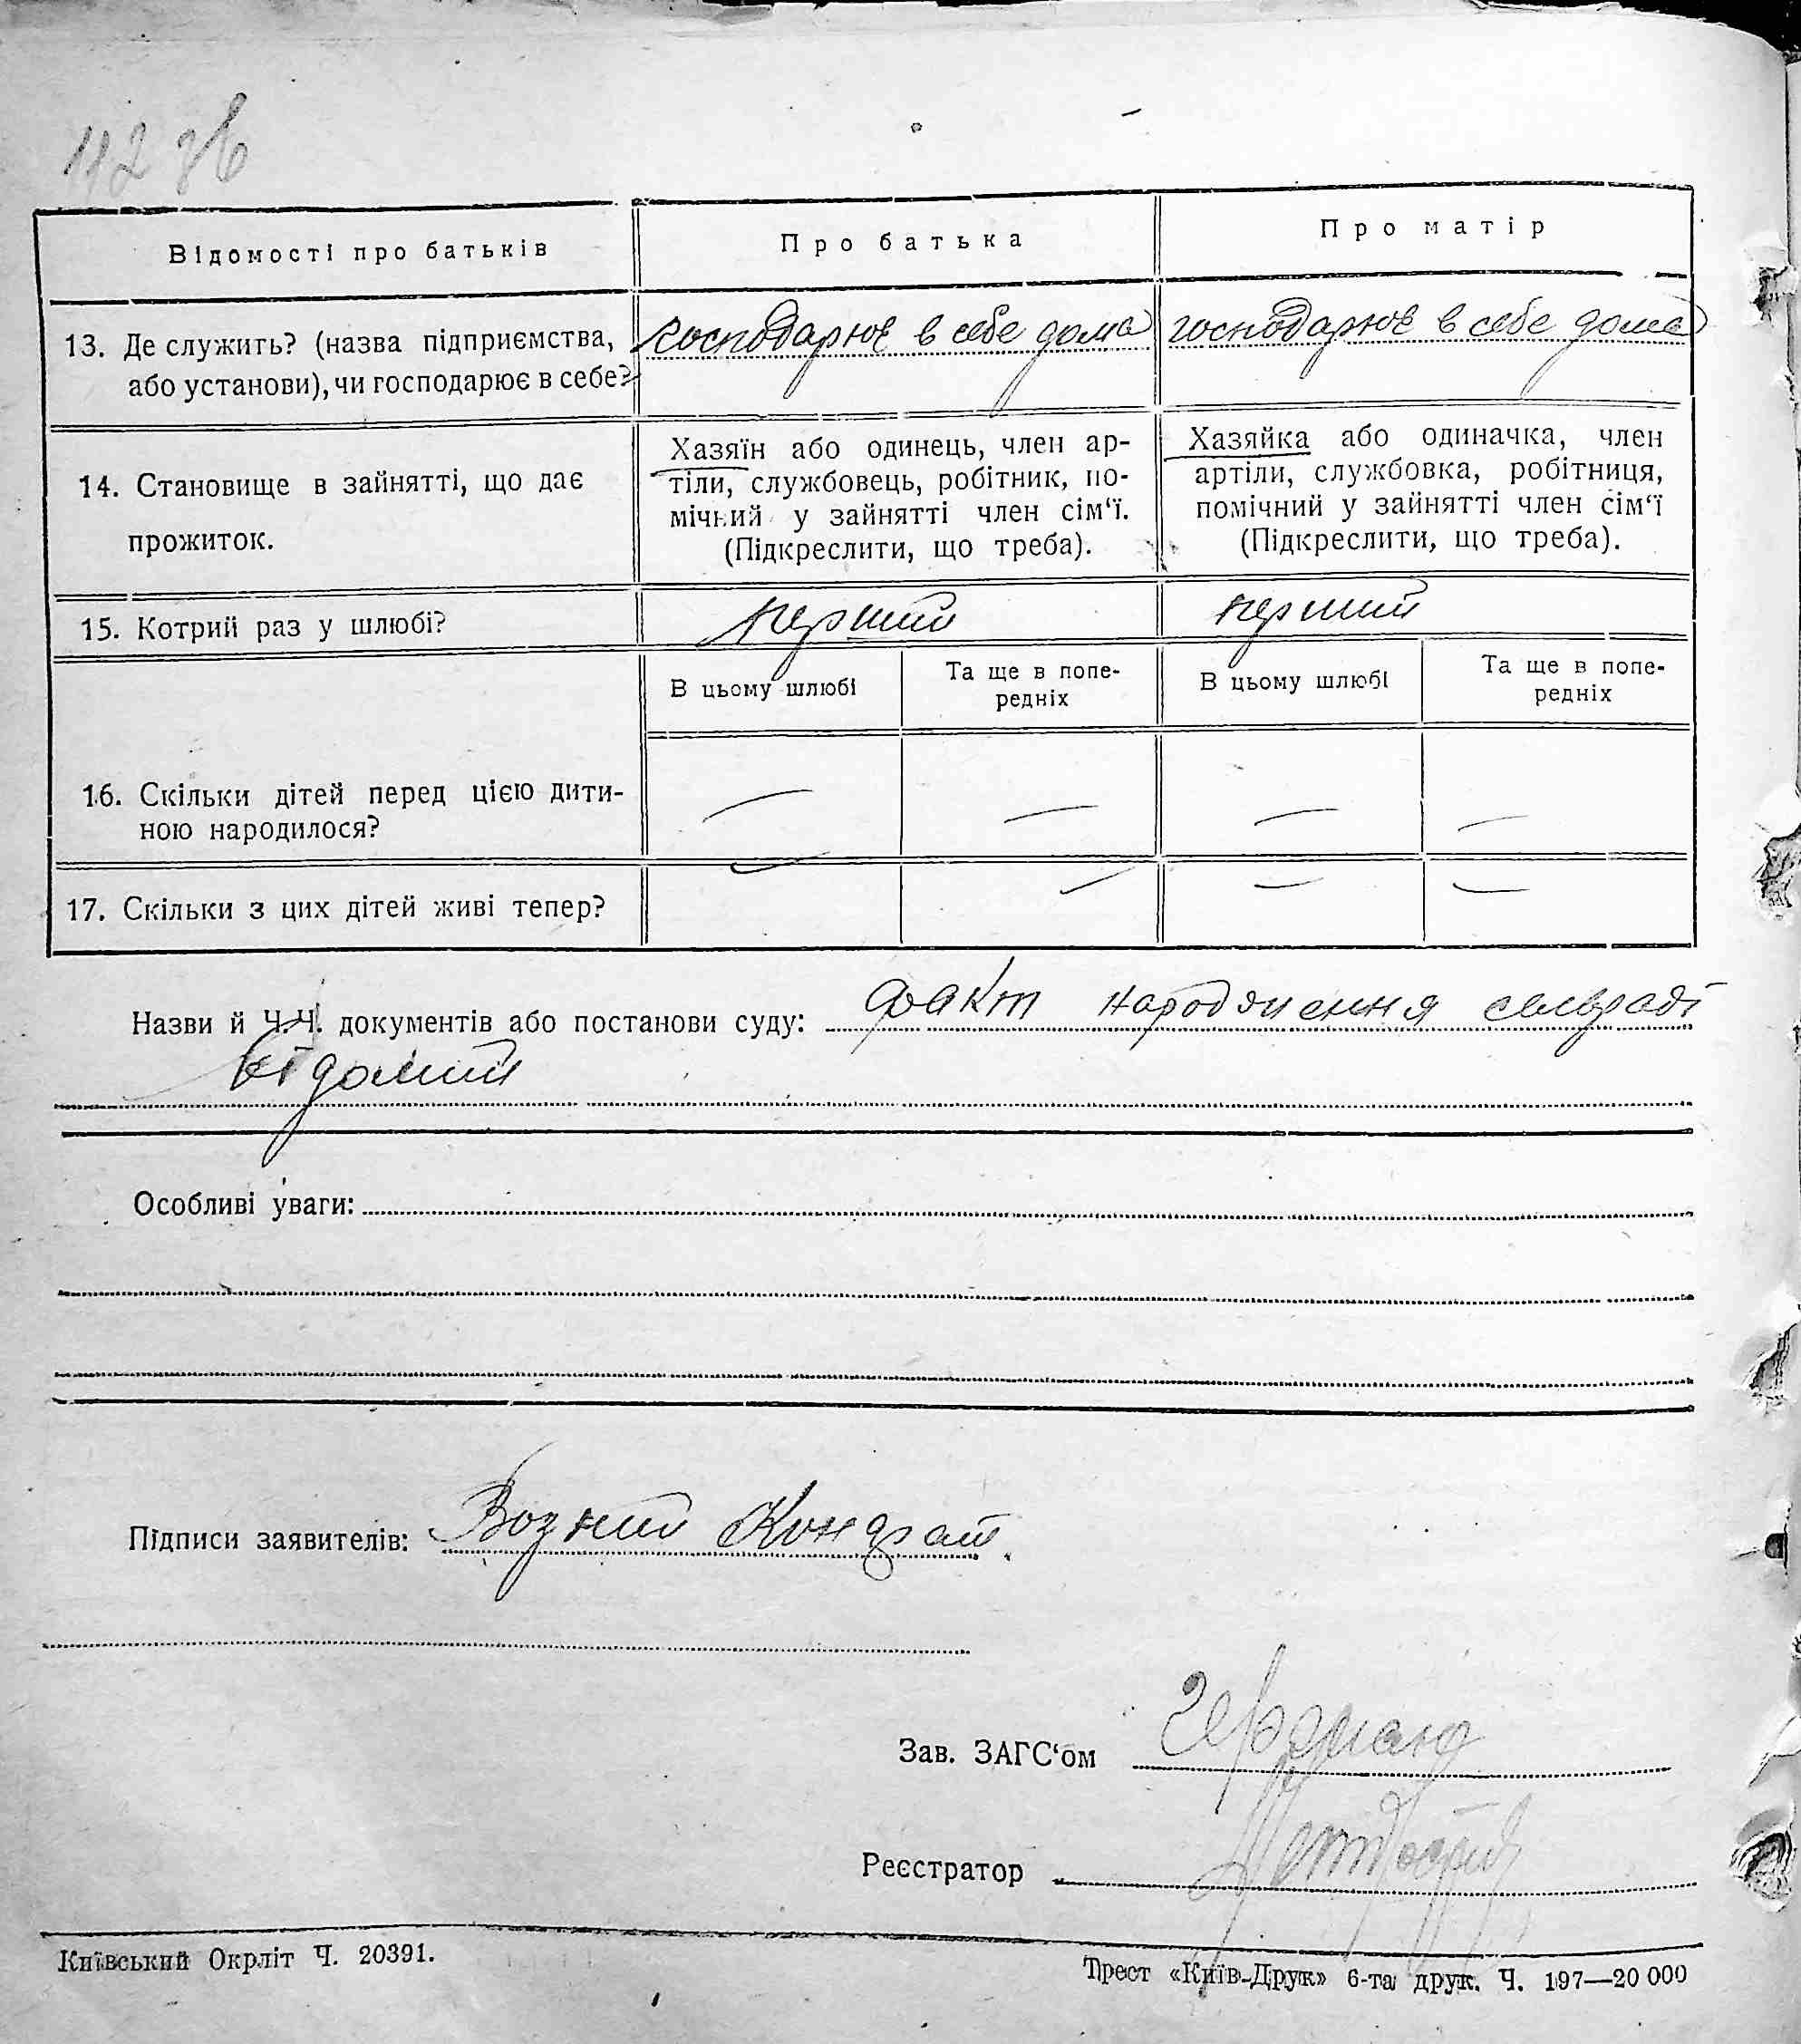 112 зв
Відомості про батьків
Про батька
Про матір
13. Де служить? (назва підприємства,
або установи), чи господарює в себе?
господарює в себе дома
господарює в себе дома
14. Становище в зайнятті, що дає
прожиток.
Хазяїн або одинець, член ар-
тіли, службовець, робітник, по-
мічний у зайнятті член сім‘ї.
(Підкреслити, що треба).
Хазяйка або одиначка, член
артіли, службовка, робітниця,
помічний у зайнятті член сім‘ї
(Підкреслити, що треба).
15. Котрий раз у шлюбі?
перший
перший
В цьому шлюбі
Та ще в попе-
редніх
В цьому шлюбі
Та ще в попе-
редніх
16. Скільки дітей перед цією дити-
ною народилося?
— — — —
17. Скільки з цих дітей живі тепер?
— — — —
Назви й Ч.Ч. документів або постанови суду: факт народження сельраді
відомий
Особливі уваги:
Підписи заявителів: Возний Кондрат.
Зав. ЗАГС‘ом
Реєстратор
Київський Окрліт Ч. 20391.
Трест «Київ-Друк» 6-та друк. Ч. 197—20 000